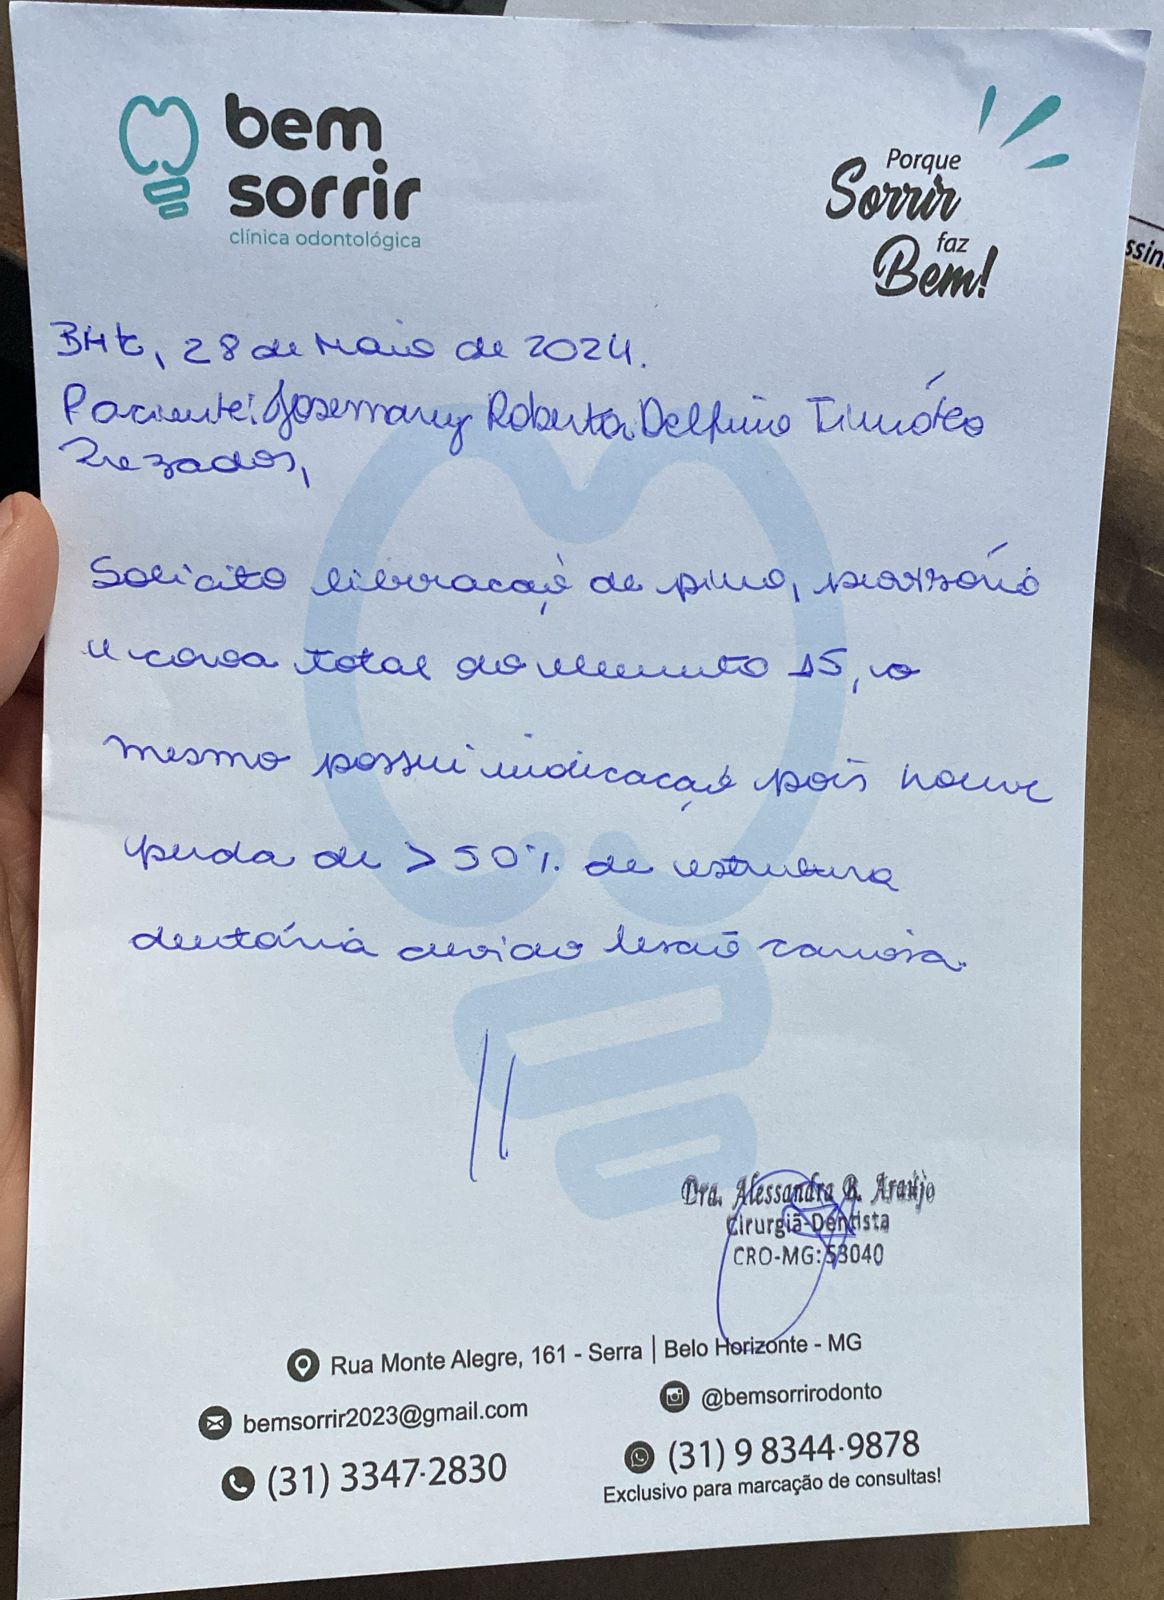 bem
sorrir
clínica odontológica
Porque
Sorrir
faz
Bem!
ssin
BHte, 28 de Maio de 2024.
Paciente: Josemary Roberta Delfino Timóteo
Prezados,
Solicito liberação de pino, provisório
e coroa total do elemento 15, o
mesmo possui indicação pois houve
perda de > 50% de estrutura
dentária devido lesão cariosa.
Dra. Alessandra R. Araújo
Cirurgiã-Dentista
CRO-MG: 53040
Rua Monte Alegre, 161 - Serra | Belo Horizonte - MG
bemsorrir2023@gmail.com
@bemsorrirodonto
(31) 3347-2830
(31) 9 8344-9878
Exclusivo para marcação de consultas!